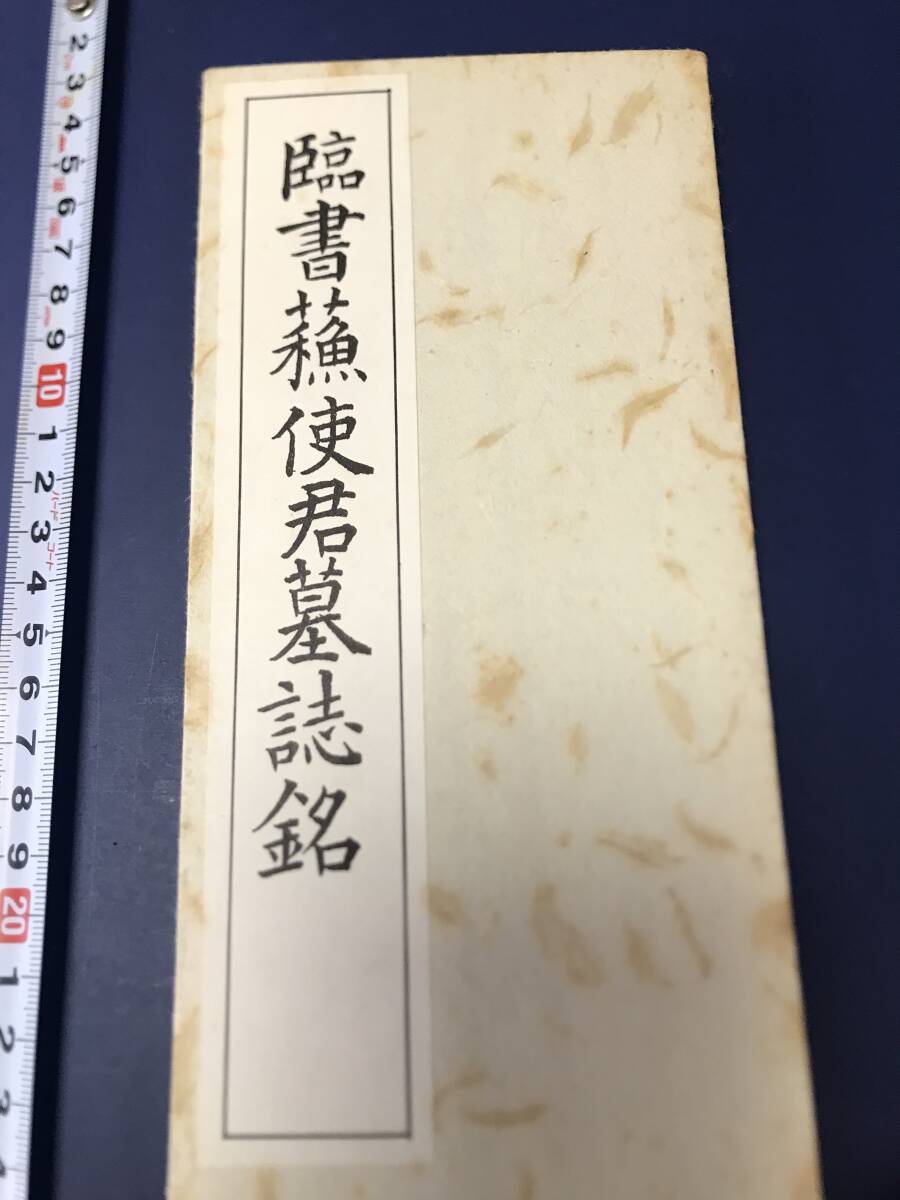 臨書蘓使君墓誌銘
2 3 4 5 6 7 8 9 10 1 2 3 4 5 6 7 8 9 20 1 2 3 4
ハード
コート